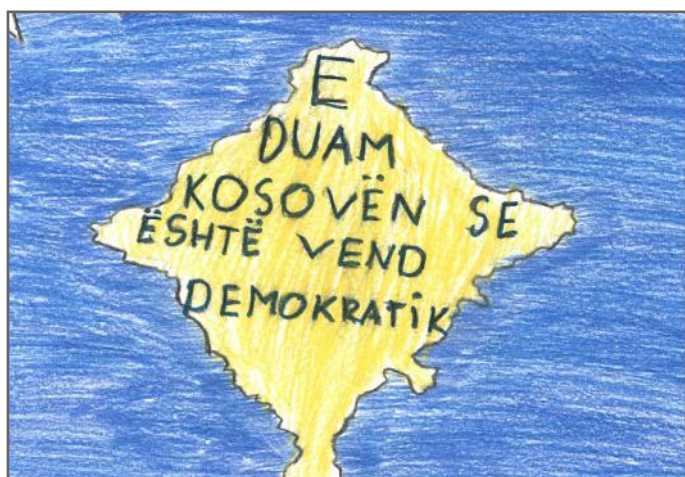 E
DUAM
KOSOVËN SE
ËSHTË VEND
DEMOKRATIK